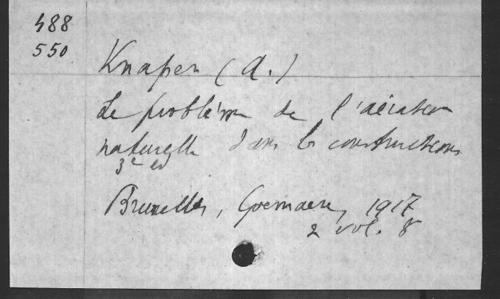 488
550
Knapen (A.)
Le problème de l'aération
naturelle dans les constructions
3e ed
Bruxelles, Goemaere, 1917
2 vol. 8